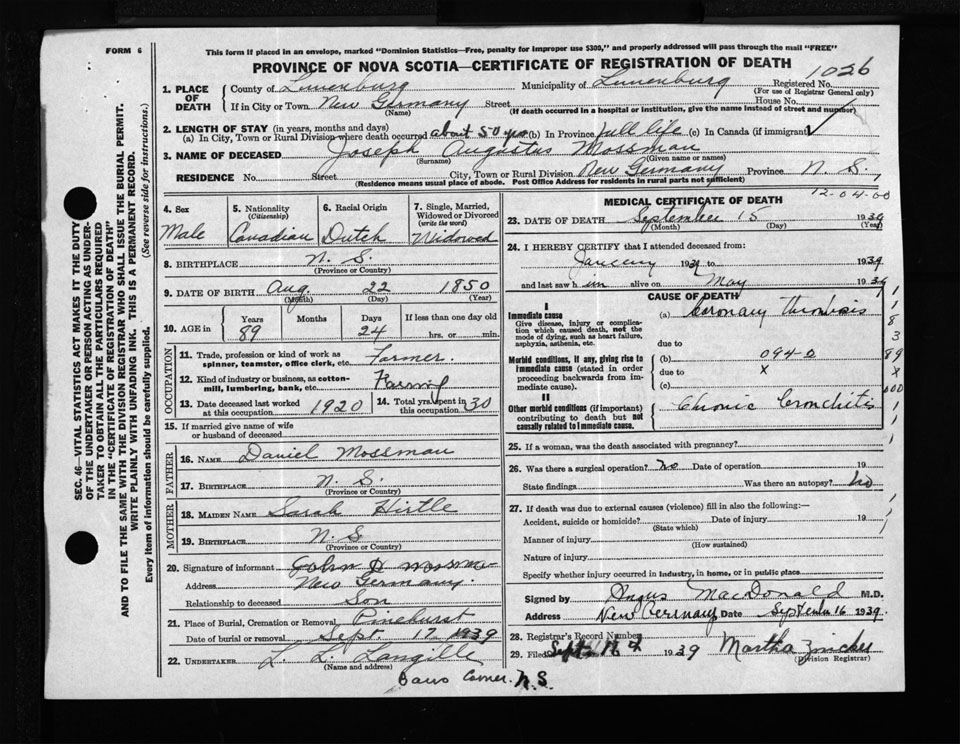 FORM 6
This form if placed in an envelope, marked "Dominion Statistics—Free, penalty for improper use $300," and properly addressed will pass through the mail "FREE"
PROVINCE OF NOVA SCOTIA—CERTIFICATE OF REGISTRATION OF DEATH
1026
SEC. 46—VITAL STATISTICS ACT MAKES IT THE DUTY
OF THE UNDERTAKER OR PERSON ACTING AS UNDER-
TAKER TO OBTAIN ALL THE PARTICULARS REQUIRED
IN THE "CERTIFICATE OF REGISTRATION OF DEATH"
AND TO FILE THE SAME WITH THE DIVISION REGISTRAR WHO SHALL ISSUE THE BURIAL PERMIT.
WRITE PLAINLY WITH UNFADING INK. THIS IS A PERMANENT RECORD.
Every item of information should be carefully supplied. (See reverse side for instructions.)
1. PLACE OF DEATH County of Lunenburg Municipality of Lunenburg Registered No.
(For use of Registrar General only)
If in City or Town New Germany Street House No.
(Name) (If death occurred in a hospital or institution, give the name instead of street and number)
2. LENGTH OF STAY (in years, months and days)
(a) In City, Town or Rural Division where death occurred about 50 yrs (b) In Province full life (c) In Canada (if immigrant)
3. NAME OF DECEASED Joseph Augustus Mossman
(Surname) (Given name or names)
RESIDENCE No. Street City, Town or Rural Division New Germany Province N. S.
(Residence means usual place of abode. Post Office Address for residents in rural parts not sufficient)
4. Sex Male
5. Nationality (Citizenship) Canadian
6. Racial Origin Dutch
7. Single, Married, Widowed or Divorced (write the word) Widowed
8. BIRTHPLACE N. S.
(Province or Country)
9. DATE OF BIRTH Aug. 22 1850
(Month) (Day) (Year)
10. AGE in Years 89 Months Days 24 If less than one day old hrs. or min.
OCCUPATION
11. Trade, profession or kind of work as spinner, teamster, office clerk, etc. Farmer.
12. Kind of industry or business, as cotton-mill, lumbering, bank, etc. Farming
13. Date deceased last worked at this occupation 1920
14. Total yrs. spent in this occupation 30
15. If married give name of wife or husband of deceased
FATHER
16. NAME Daniel Mossman
17. BIRTHPLACE N. S.
(Province or Country)
MOTHER
18. MAIDEN NAME Sarah Hirtle
19. BIRTHPLACE N. S.
(Province or Country)
20. Signature of informant John D Mossman
Address New Germany.
Relationship to deceased Son
21. Place of Burial, Cremation or Removal Pinehurst
Date of burial or removal Sept. 17 1939
22. UNDERTAKER L. L. Langille
(Name and address)
N.S.
12-04-00
MEDICAL CERTIFICATE OF DEATH
23. DATE OF DEATH September 15 1939
(Month) (Day) (Year)
24. I HEREBY CERTIFY that I attended deceased from:
January 1939 to 1939
and last saw him alive on May 1939
CAUSE OF DEATH
I
Immediate cause
Give disease, injury or complication which caused death, not the mode of dying, such as heart failure, asphyxia, asthenia, etc.
(a) Coronary Thrombosis
due to
Morbid conditions, if any, giving rise to immediate cause (stated in order proceeding backwards from immediate cause).
(b) 094-0
due to X
(c)
II
Other morbid conditions (if important) contributing to death but not causally related to immediate cause.
Chronic Bronchitis
25. If a woman, was the death associated with pregnancy?
26. Was there a surgical operation? no Date of operation 19
State findings Was there an autopsy? no
27. If death was due to external causes (violence) fill in also the following:—
Accident, suicide or homicide? Date of injury 19
(State which)
Manner of injury
(How sustained)
Nature of injury
Specify whether injury occurred in industry, in home, or in public place
Signed by Angus MacDonald M.D.
Address New Germany Date September 16 1939
28. Registrar's Record Number
29. Filed Sept 1939 Martha Zinck
(Division Registrar)